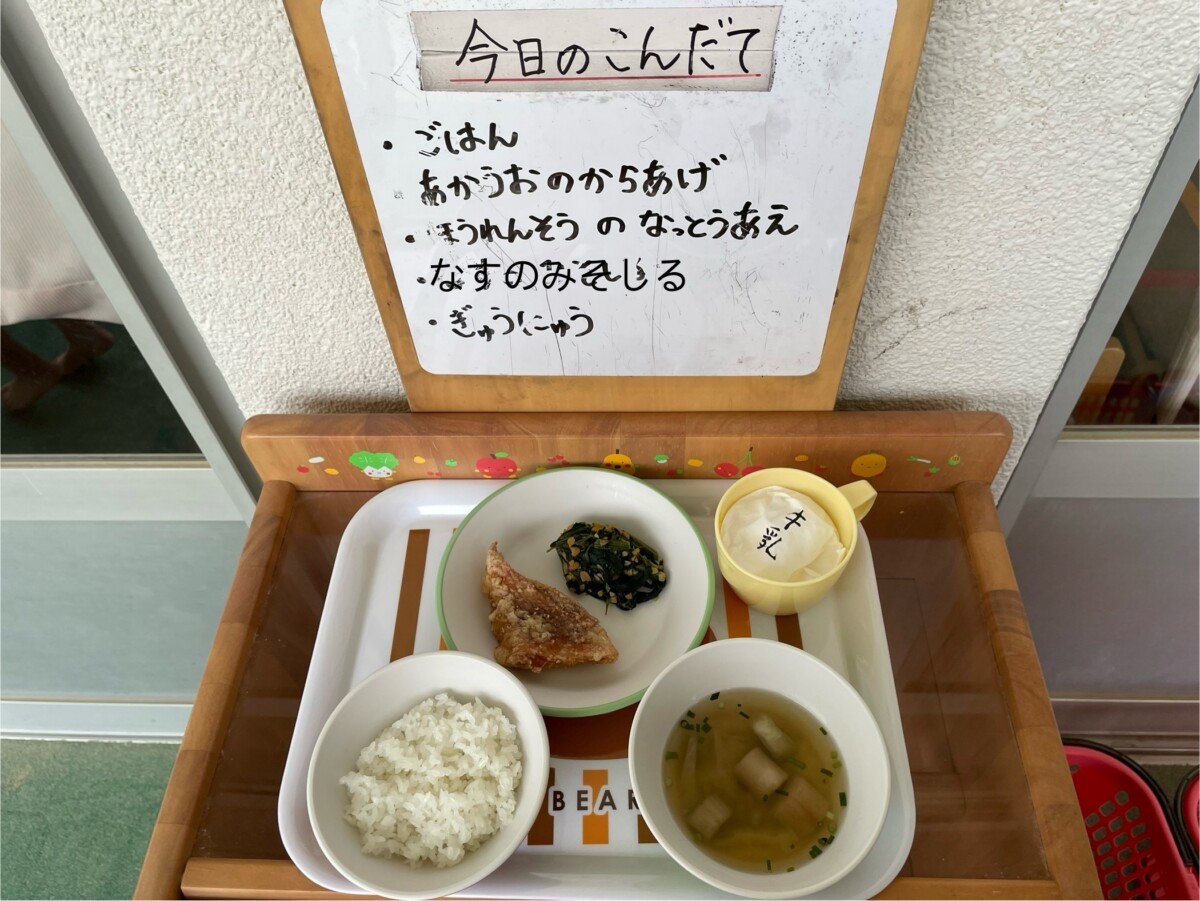 今日のこんだて
・ごはん
あかうおのからあげ
・ほうれんそうのなっとうあえ
・なすのみそしる
・ぎゅうにゅう
牛乳
BEAR